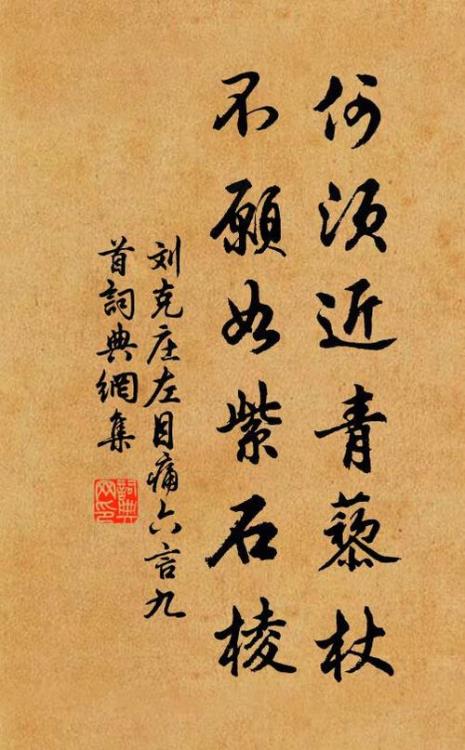 何須近青藜杖
不願如紫石棱
刘克庄左目痛六言九
首詞典網集
詞典
网印